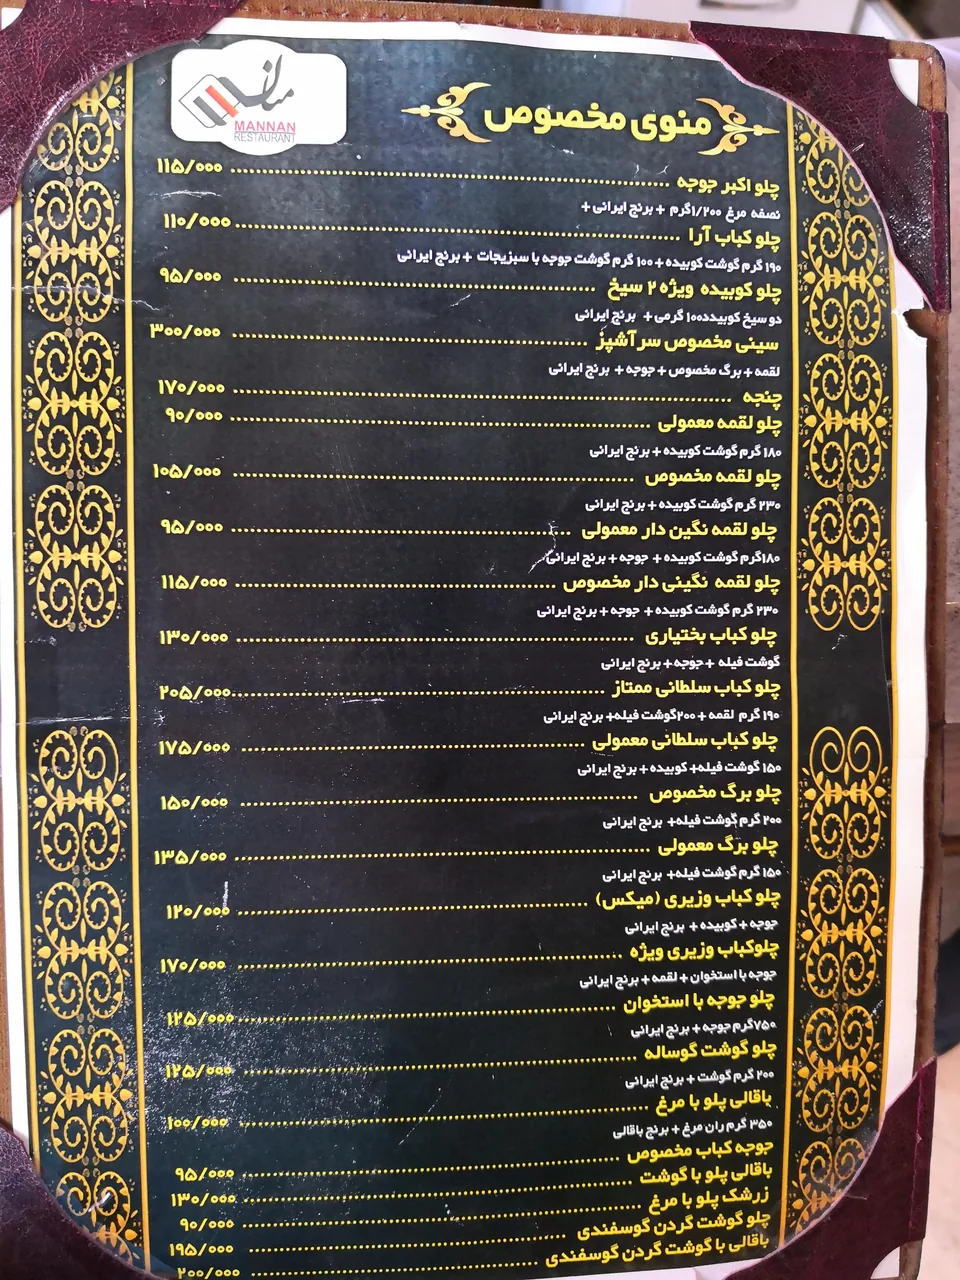 منان
MANNAN
RESTAURANT
منوی مخصوص
چلو اکبر جوجه ۱۱۵/۰۰۰
نصفه مرغ ۱/۲۰۰گرم + برنج ایرانی +
چلو کباب آرا ۱۱۰/۰۰۰
۱۹۰ گرم گوشت کوبیده + ۱۰۰ گرم گوشت جوجه با سبزیجات + برنج ایرانی
چلو کوبیده ویژه ۲ سیخ ۹۵/۰۰۰
دو سیخ کوبیدد۱۰۰ گرمی + برنج ایرانی
سینی مخصوص سرآشپز ۳۰۰/۰۰۰
لقمه + برگ مخصوص + جوجه + برنج ایرانی
چنجه ۱۷۰/۰۰۰
چلو لقمه معمولی ۹۰/۰۰۰
۱۸۰ گرم گوشت کوبیده + برنج ایرانی
چلو لقمه مخصوص ۱۰۵/۰۰۰
۲۳۰ گرم گوشت کوبیده + برنج ایرانی
چلو لقمه نگین دار معمولی ۹۵/۰۰۰
۱۸۰گرم گوشت کوبیده + جوجه + برنج ایرانی
چلو لقمه نگینی دار مخصوص ۱۱۵/۰۰۰
۲۳۰ گرم گوشت کوبیده + جوجه + برنج ایرانی
چلو کباب بختیاری ۱۳۰/۰۰۰
گوشت فیله + جوجه + برنج ایرانی
چلو کباب سلطانی ممتاز ۲۰۵/۰۰۰
۱۹۰ گرم لقمه + ۲۰۰گوشت فیله+ برنج ایرانی
چلو کباب سلطانی معمولی ۱۷۵/۰۰۰
۱۵۰ گوشت فیله+ کوبیده + برنج ایرانی
چلو برگ مخصوص ۱۵۰/۰۰۰
۲۰۰ گرم گوشت فیله+ برنج ایرانی
چلو برگ معمولی ۱۳۵/۰۰۰
۱۵۰ گرم گوشت فیله+ برنج ایرانی
چلو کباب وزیری (میکس) ۱۲۰/۰۰۰
جوجه + کوبیده + برنج ایرانی
چلوکباب وزیری ویژه ۱۷۰/۰۰۰
جوجه با استخوان + لقمه + برنج ایرانی
چلو جوجه با استخوان ۱۲۵/۰۰۰
۷۵۰گرم جوجه + برنج ایرانی
چلو گوشت گوساله ۱۲۵/۰۰۰
۲۰۰ گرم گوشت + برنج ایرانی
باقالی پلو با مرغ ۱۰۰/۰۰۰
۳۵۰ گرم ران مرغ + برنج باقالی
جوجه کباب مخصوص ۹۵/۰۰۰
باقالی پلو با گوشت ۱۳۰/۰۰۰
زرشک پلو با مرغ ۹۰/۰۰۰
چلو گوشت گردن گوسفندی ۱۹۵/۰۰۰
باقالی با گوشت گردن گوسفندی ۲۰۰/۰۰۰